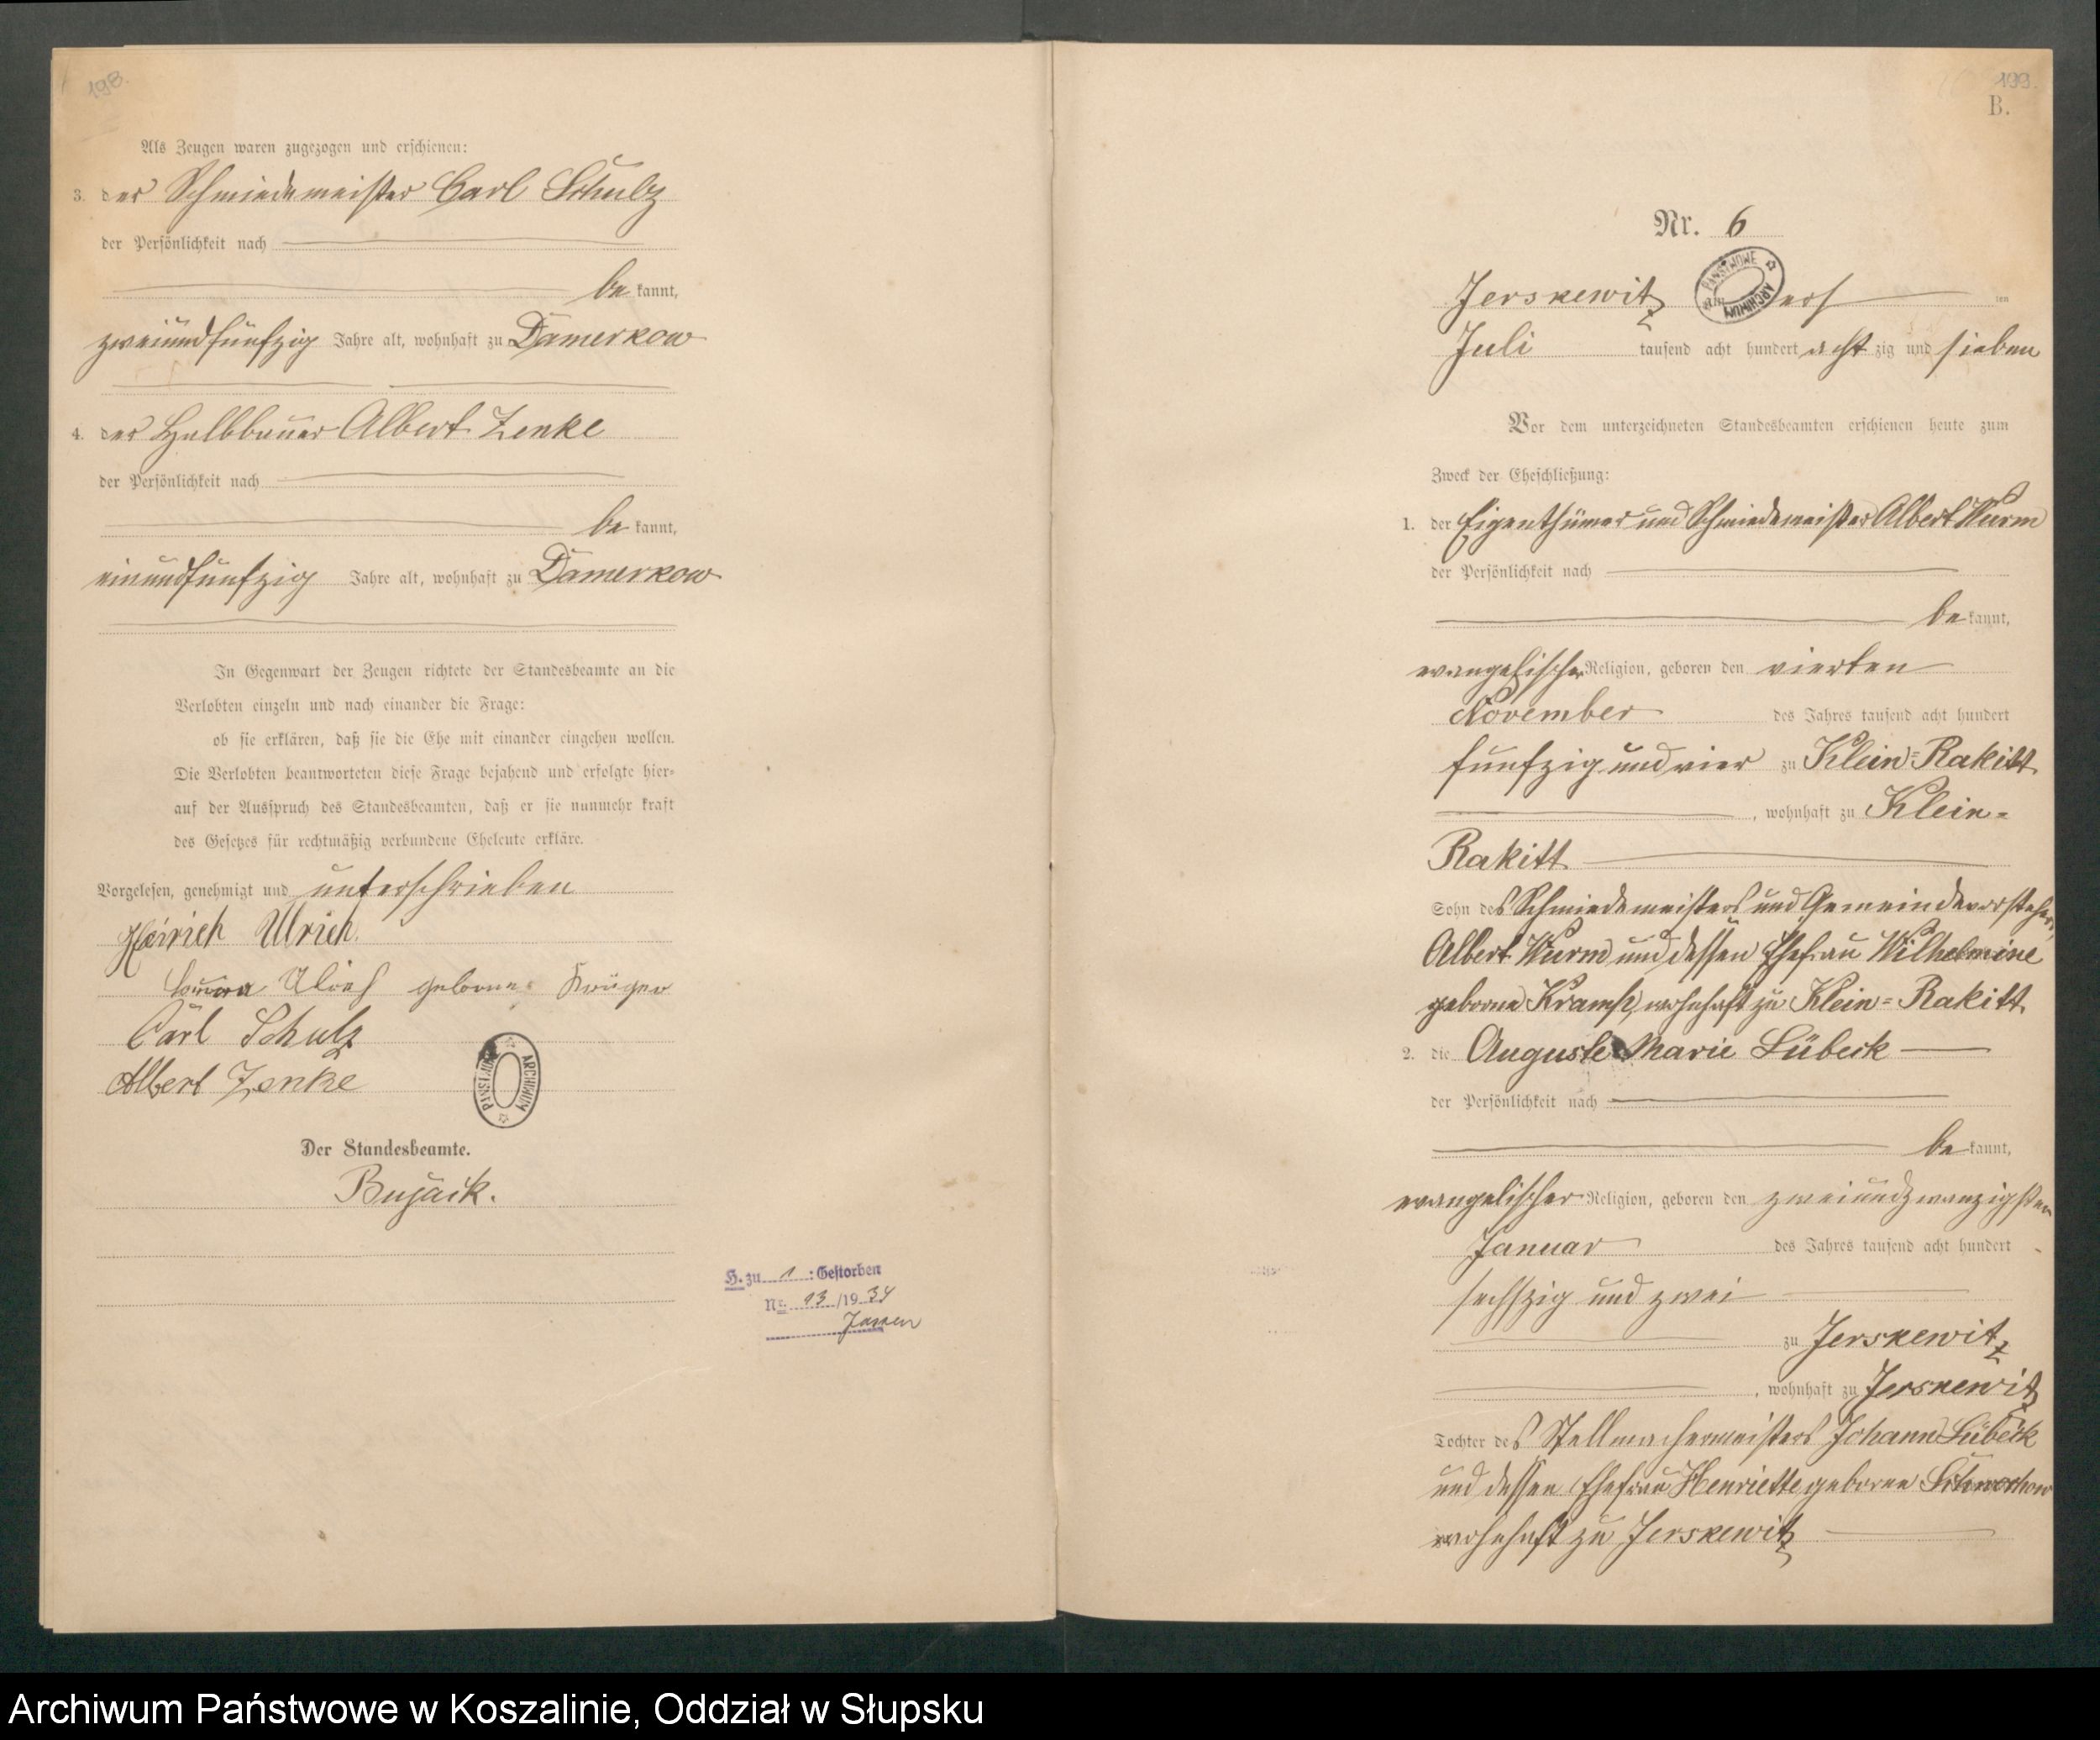 198.
Als Zeugen waren zugezogen und erschienen:
3. der Schmiedemeister Carl Schulz
der Persönlichkeit nach
bekannt,
zweiundfünfzig Jahre alt, wohnhaft zu Damerkow
4. der Halbbauer Albert Zenke
der Persönlichkeit nach
bekannt,
einundfünfzig Jahre alt, wohnhaft zu Damerkow
In Gegenwart der Zeugen richtete der Standesbeamte an die
Verlobten einzeln und nach einander die Frage:
ob sie erklären, daß sie die Ehe mit einander eingehen wollen.
Die Verlobten beantworteten diese Frage bejahend und erfolgte hier-
auf der Ausspruch des Standesbeamten, daß er sie nunmehr kraft
des Gesetzes für rechtmäßig verbundene Eheleute erkläre.
Vorgelesen, genehmigt und unterschrieben
Heinrich Ulrich.
Ulrich geborne Krüger
Carl Schulz
Albert Zenke
PAŃSTWOWE ARCHIWUM
Der Standesbeamte.
Bujack.
H. zu 1 : Gestorben
Nr. 13 /1934
Jassen
199.
B.
Nr. 6
Jerskewitz am ers ten
PAŃSTWOWE ARCHIWUM
Juli tausend acht hundert achtzig und sieben
Vor dem unterzeichneten Standesbeamten erschienen heute zum
Zweck der Eheschließung:
1. der Eigenthümer und Schmiedemeister Albert Wurm
der Persönlichkeit nach
bekannt,
evangelischer Religion, geboren den vierten
November des Jahres tausend acht hundert
fünfzig und vier zu Klein-Rakitt
, wohnhaft zu Klein-
Rakitt
Sohn des Schmiedemeisters und Gemeindevorstehers,
Albert Wurm und dessen Ehefrau Wilhelmine
geborne Kramp, wohnhaft zu Klein-Rakitt.
2. die Auguste Marie Lübeck
der Persönlichkeit nach
bekannt,
evangelischer Religion, geboren den zweiundzwanzigsten
Januar des Jahres tausend acht hundert
sechszig und zwei
zu Jerskewitz
, wohnhaft zu Jerskewitz
Tochter des Stellmachermeisters Johann Lübeck
und dessen Ehefrau Henriette geborne Schwochow
wohnhaft zu Jerskewitz
Archiwum Państwowe w Koszalinie, Oddział w Słupsku